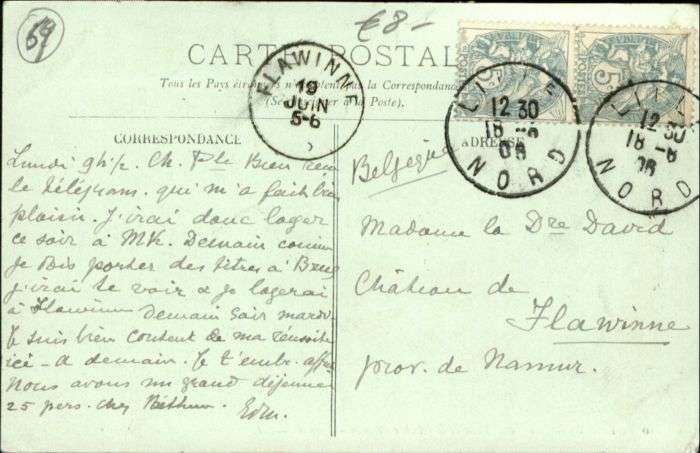 69
€8-
CARTE POSTALE
Tous les Pays étrangers n'acceptent pas la Correspondance
(Se renseigner à la Poste).
FLAWINNE
19
JUIN
5-6
LILLE
12 30
18 -6
06
NORD
LILLE
12 30
18 -6
06
NORD
5
5
CORRESPONDANCE
ADRESSE
Lundi 9h ½. Ch. Bien reçu
le télégram. qui m'a fait bien
plaisir. J'irai donc loger
ce soir à MK. Demain comme
je dois porter des titres à Brux
j'irai te voir & je logerai
à Flawinne demain soir mardi.
Je suis bien content de ma réussite
ici - à demain. Je t'embr. aff.
Nous avons un grand déjeuner
25 pers. chez
Edm.
Belgique
Madame la Dre David
Château de
Flawinne
prov. de Namur.